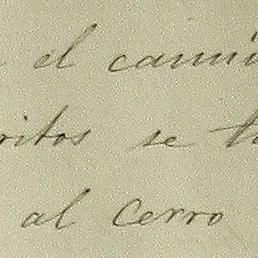 el camin
ritos se t
al cerro